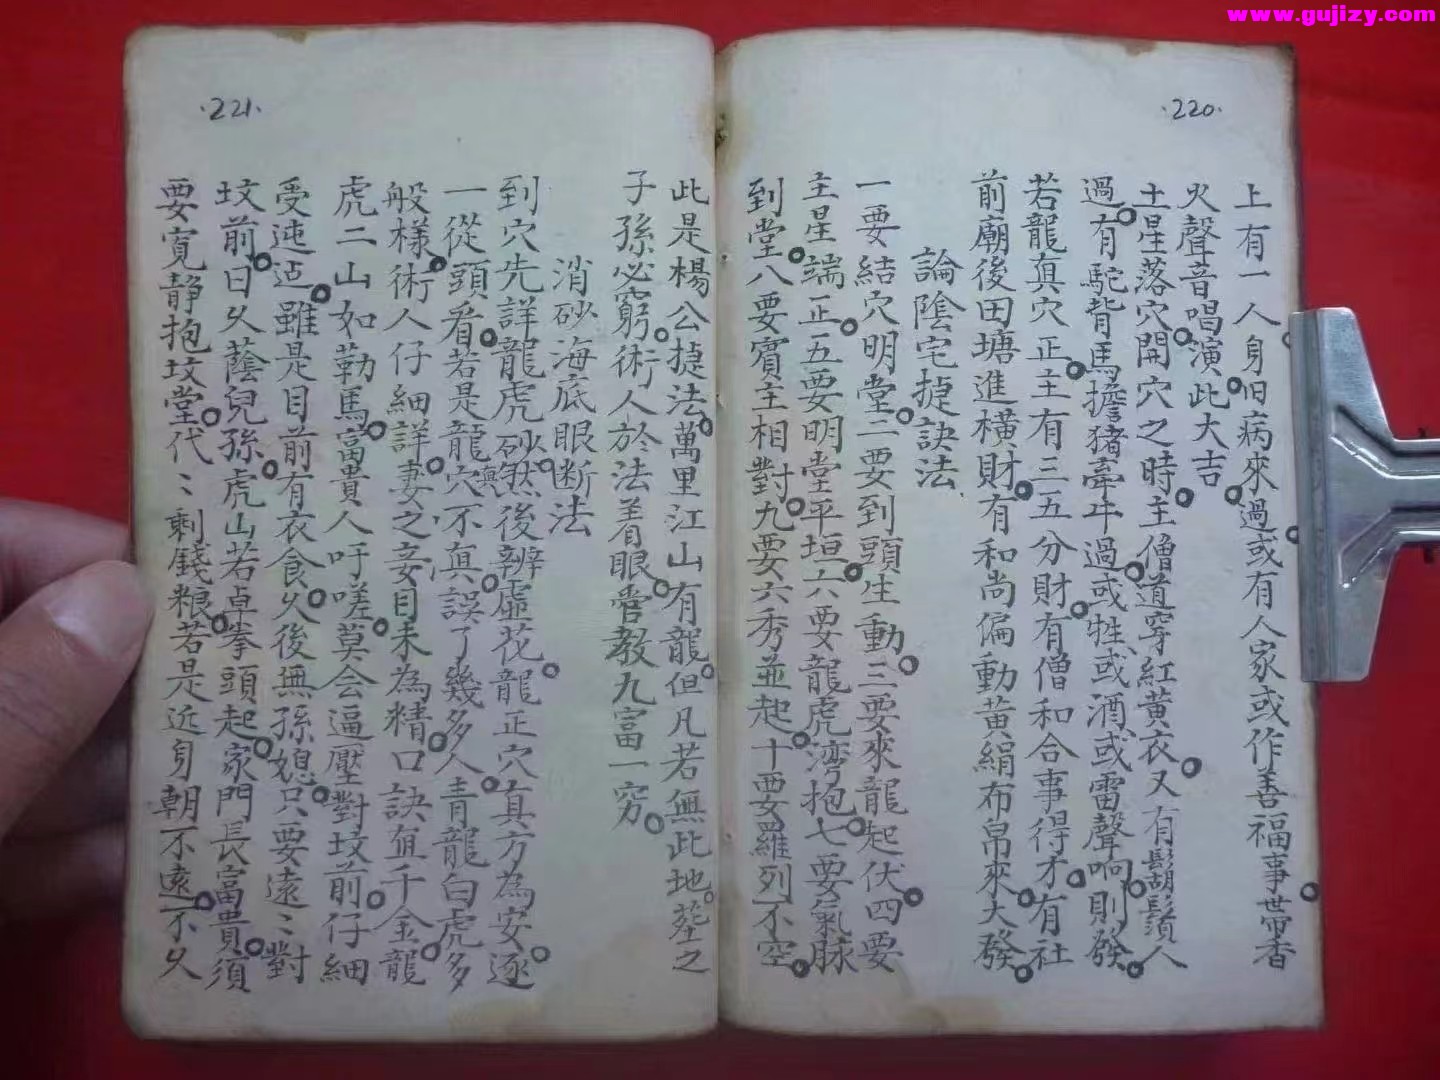 www.gujizy.com
·220·
上有一人身旧病來過或有人家或作善福事帶香
火聲音唱演此大吉
土星落穴開穴之時主僧道穿紅黃衣又有鬍鬚人
過有駝背馬擔豬牽牛過或牲或酒或雷聲响則發
若龍真穴正主有三五分財有僧和合事得才有社
前廟後田塘進橫財有和尚偏動黃絹布帛來大發
論陰宅捷訣法
一要結穴明堂二要到頭生動三要來龍起伏四要
主星端正五要明堂平垣六要龍虎湾抱七要氣脉
到堂八要賓主相對九要六秀並起十要羅列不空
·221·
此是楊公捷法萬里江山有龍但凡若無此地塟之
子孫必窮術人於法着眼管教九富一穷
消砂海底眼断法
到穴先詳龍虎砂然後辨虛花龍正穴真方為安逐
一從頭看若是龍無穴不真誤了幾多人青龍白虎多
般樣術人仔細詳妻之妾目未為精口訣值千金龍
虎二山如勒馬富貴人吁嗟莫会逼壓對坟前仔細
受迍迍雖是目前有衣食久後無孫媳只要遠〻對
坟前日久蔭兒孫虎山若卓拳頭起家門長富貴須
要寬静抱坟堂代〻剩錢粮若是近身朝不遠不久